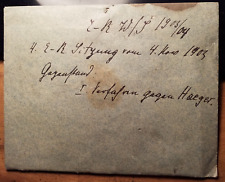 E-R W/S 1903/04
4. E-R Sitzung vom 4. Nov 1903
Gegenstand:
I. Verfahren gegen Haeger.